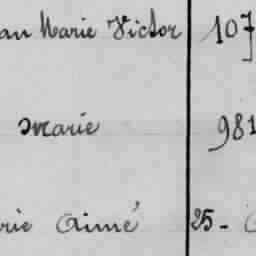 an Marie Victor 107
Marie 981
rie Aimé 25 -